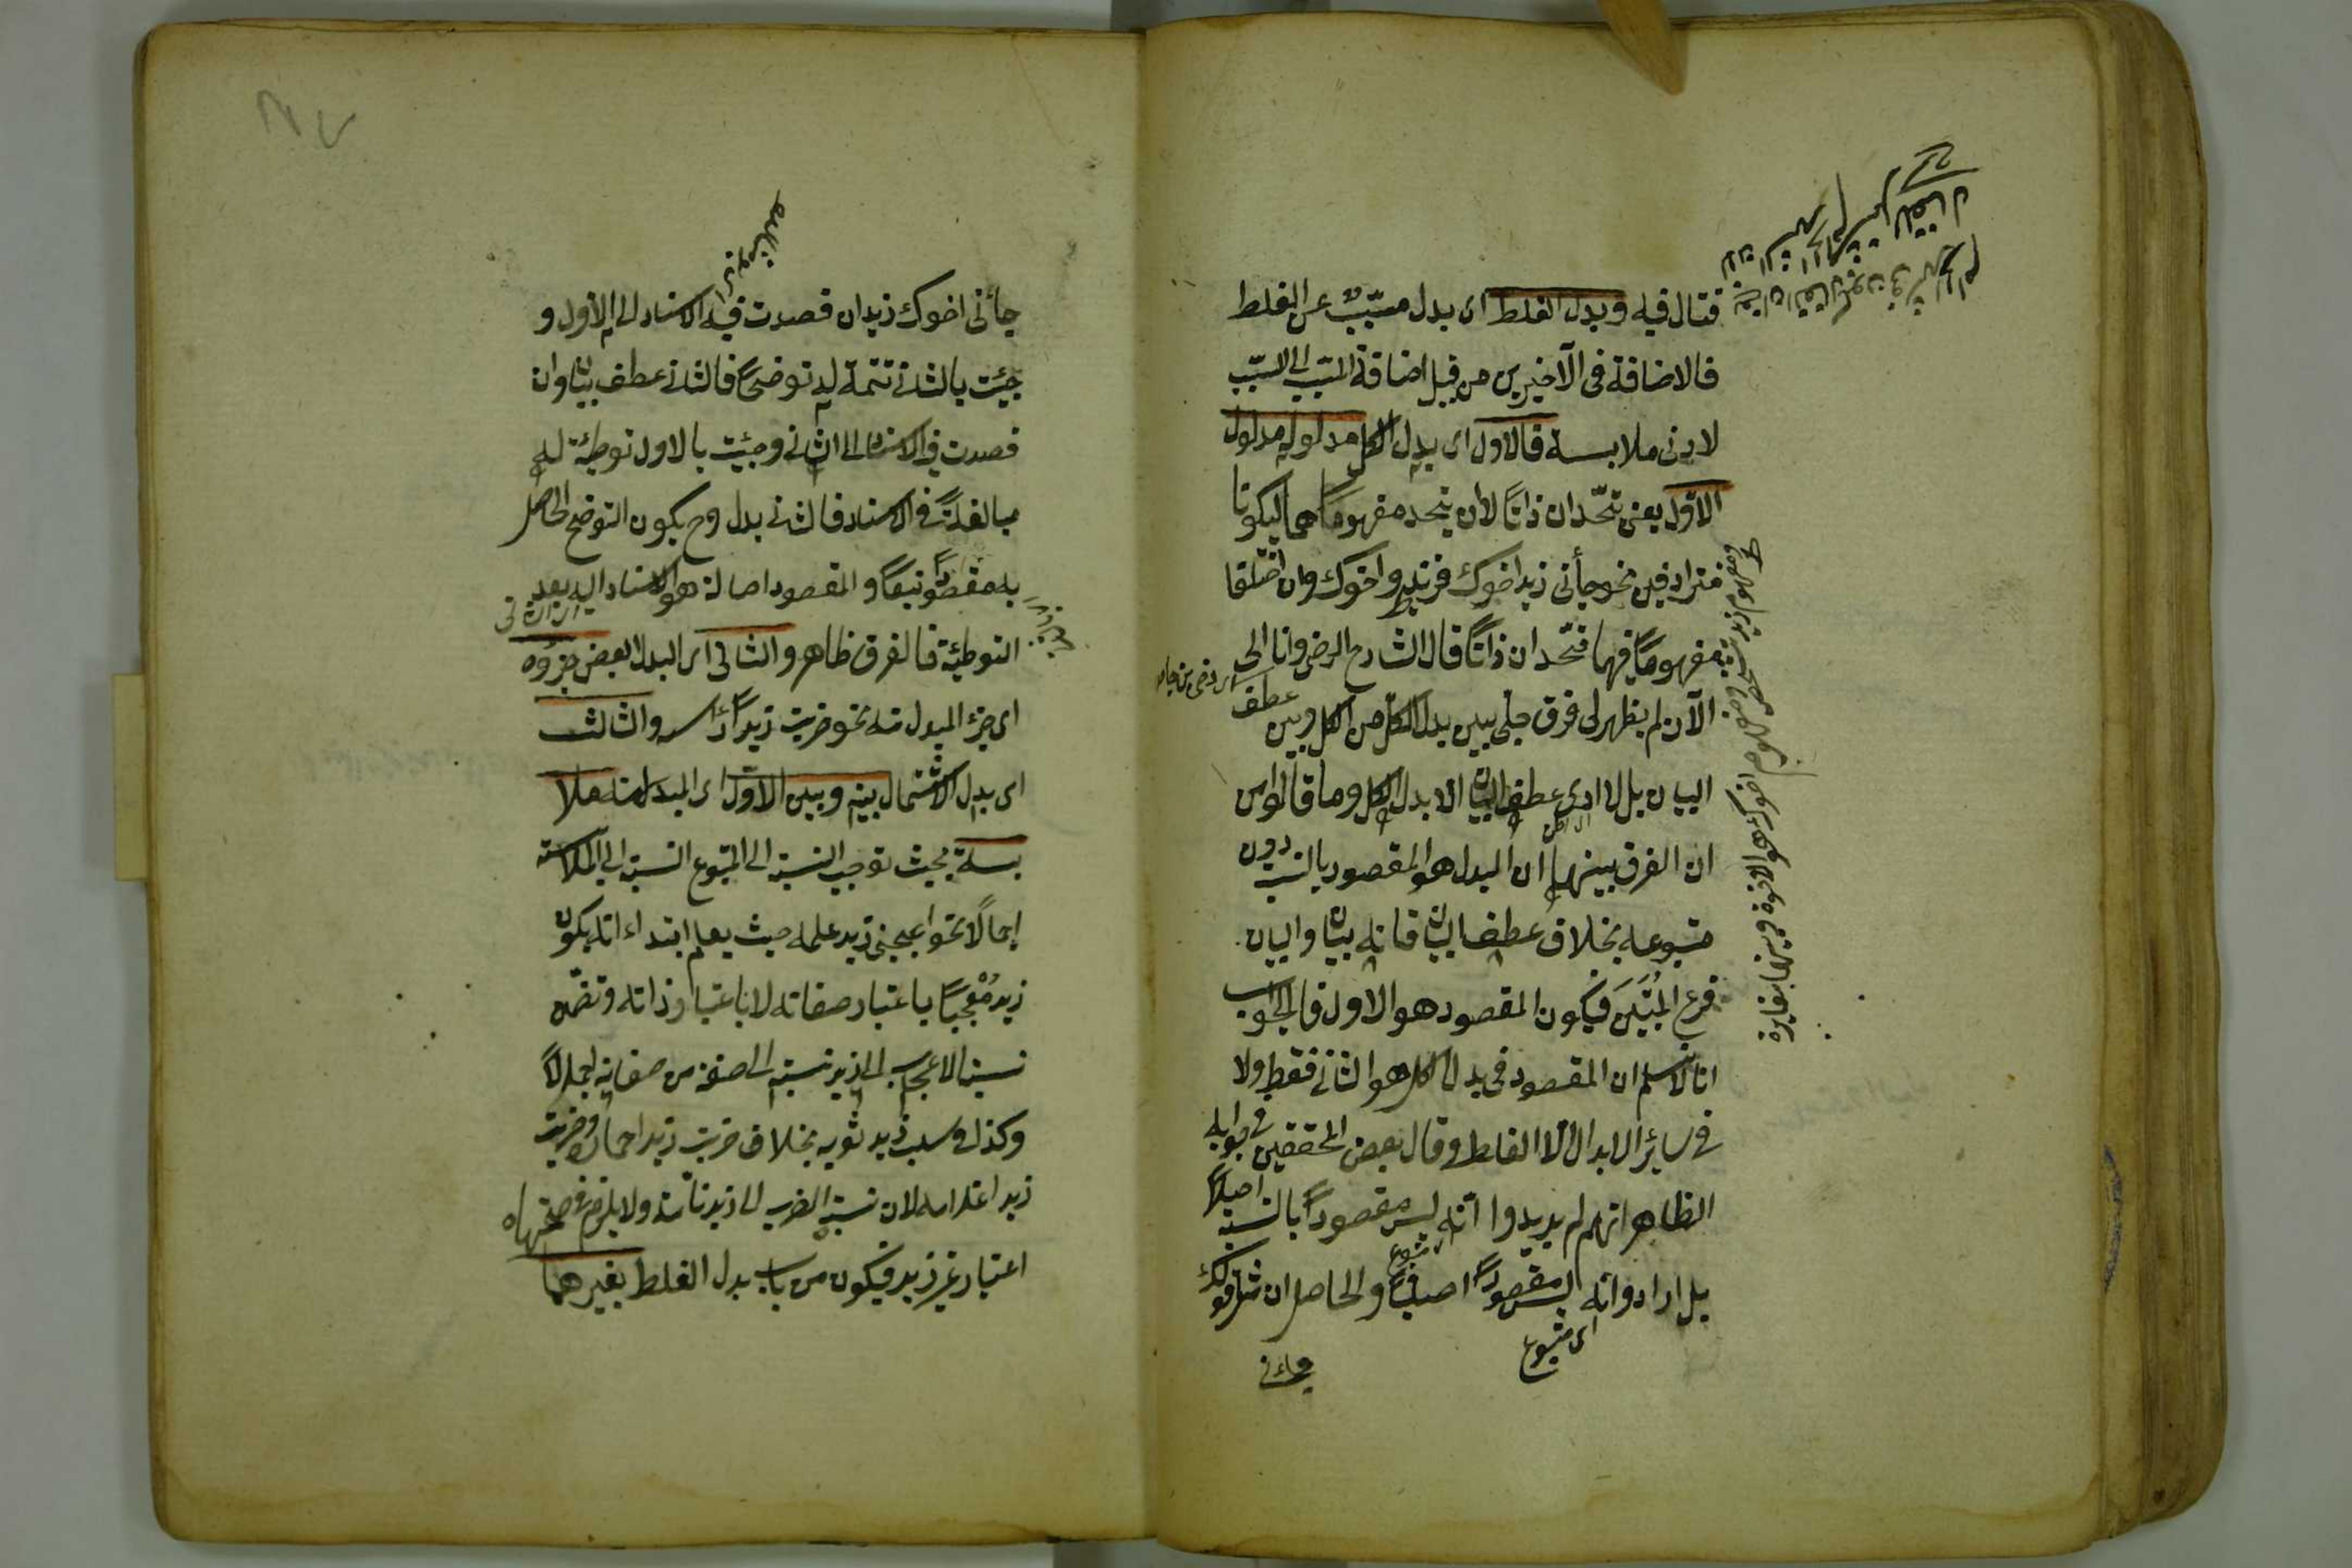 قتال فيه وبدل الغلط اى بدل مسبّب عن الغلط
فالاضافة فى الآخيرين من قبيل اضافة المسبّب الى السبّب
لادنى ملابسة فالاول اى بدل الكل مدلوله مدلول
الاوّل يعنى يتّحدان ذاتًا لا ان يتحد مفهوماهما ليكونا
مترادفين نحو جأنى زيد اخوك فزيد واخوك وان اختلفا
مفهومًا فهما متّحدان ذاتًا قال الشارح الرضى وانا الى
الآن لم يظهر لى فرق جلى بين بدل الكل من الكل وبين عطف
البيان بل لا ارى عطف البيان الا بدل الكل وما قالوا من
ان الفرق بينهما ان البدل هو المقصود بالنسبة دون
متبوعه بخلاف عطف البيان فانه بيان والبيان
فرع المُبَيَّن فيكون المقصود هو الاول فالجواب
انا لا نسلم ان المقصود فى بدل الكل هو الثانى فقط ولا
فى سائر الابدال الا الغلط وقال بعض المحققين فى جوابه
الظاهر انهم لم يريدوا انه ليس مقصودًا بالنسبة اصلاً
بل ارادوا انه ليس مقصودًا اصليًا والحاصل ان مثل قولك
اى متبوع
جاءنى
ومفهوم زيد شخص
اخوك هو الاخوة فبينهما مغايرة
جأنى اخوك زيد ان قصدت فيه الاسناد الى الاول و
جئت بالثانى تتمة له توضيحًا فالثانى عطف بيان وان
قصدت فيه الاسناد الى الثانى وجئت بالاول توطئة له
مبالغةً فى الاسناد فالثانى بدل وح يكون التوضيح الحاصل
به مقصودًا تبعًا والمقصود اصالة هو الاسناد اليه بعد
التوطئة فالفرق ظاهر والثانى اى البدل البعض جزؤه
اى جزء المبدل منه نحو ضربت زيدًا رأسه والثالث
اى بدل الاشتمال بينه وبين الاوّل اى المبدل منه ملا
بسة بحيث توجب النسبة الى المتبوع النسبة الى الملابسة
إجمالًا نحو اعجبنى زيد علمه حيث يعلم ابتداء انه يكون
زيد مُعْجِبًا باعتبار صفاته لا باعتبار ذاته وتضمّن
نسبة الاعجاب الى زيد نسبته الى صفة من صفاته اجمالاً
وكذا فى سلب زيد ثوبه بخلاف ضربت زيدا حماره وضربت
زيد اغلامه لان نسبة الضرب الى زيد تامّة ولا يلزم فى صحتها
اعتبار غير زيد فيكون من باب بدل الغلط بغيرهما